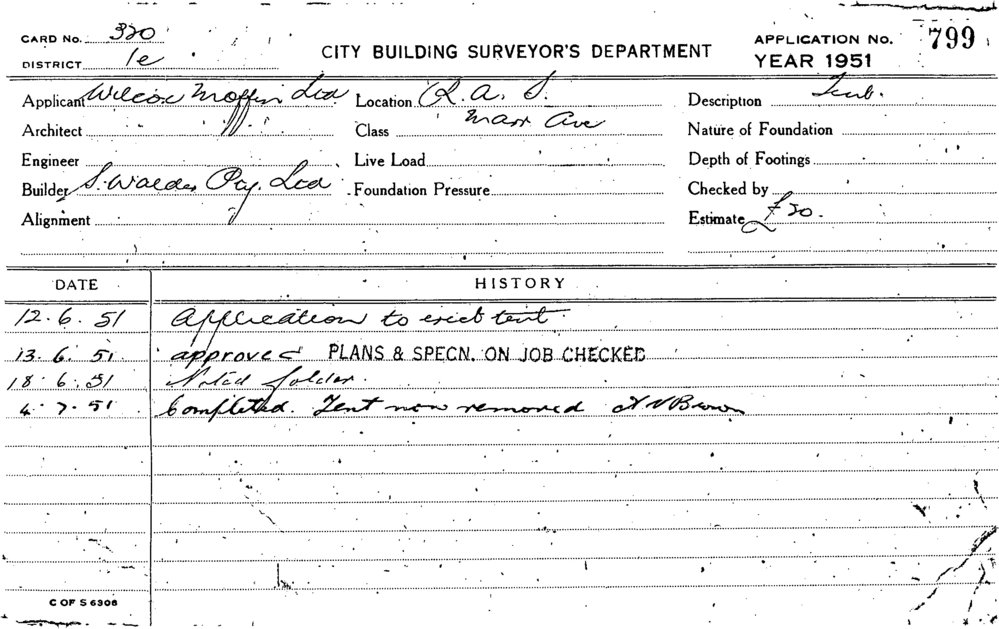 CARD No. 320
DISTRICT 1e
CITY BUILDING SURVEYOR'S DEPARTMENT
APPLICATION No. 799
YEAR 1951
Applicant Wilcox Moffin Ltd
Location R. A. S.
Description Tent.
Architect
Class Marr Ave
Nature of Foundation
Engineer
Live Load
Depth of Footings
Builder S. Walder Pty. Ltd
Foundation Pressure
Checked by
Alignment
Estimate £20.
DATE HISTORY
12.6.51 Application to erect tent
13.6.51 approved PLANS & SPECN. ON JOB CHECKED
18.6.51 Noted folder.
4.7.51 Completed. Tent now removed Brown
C OF S 6306